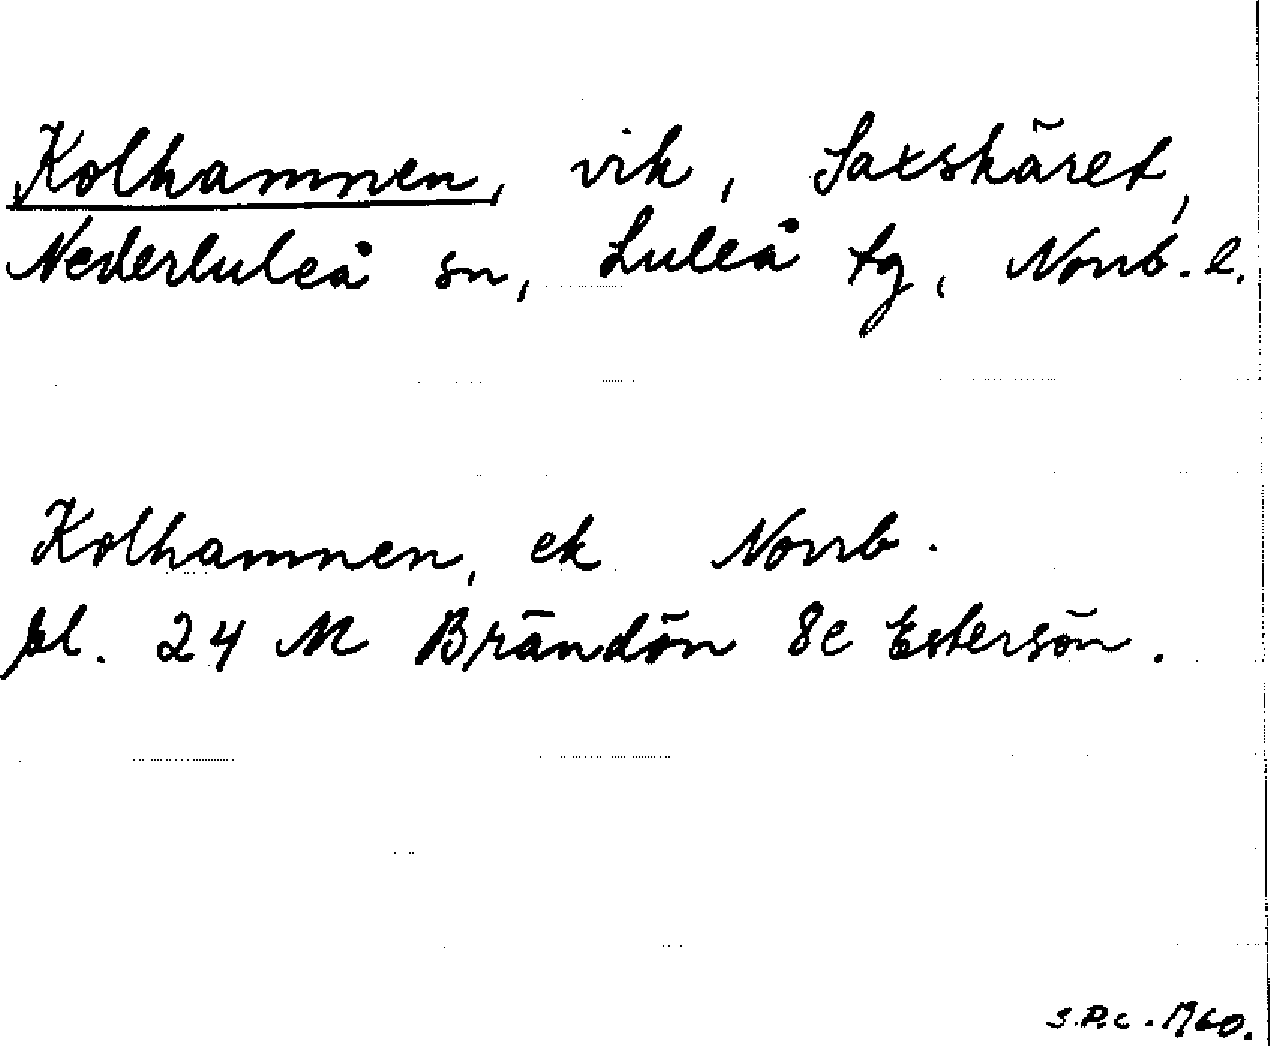 Kolhamnen, vik, Saxskäret,
Nederluleå sn, Luleå tg, Norrb. l.
Kolhamnen, ek Norrb.
bl. 24 M Brändön 8c Estersön.
S.R.C. 1960.